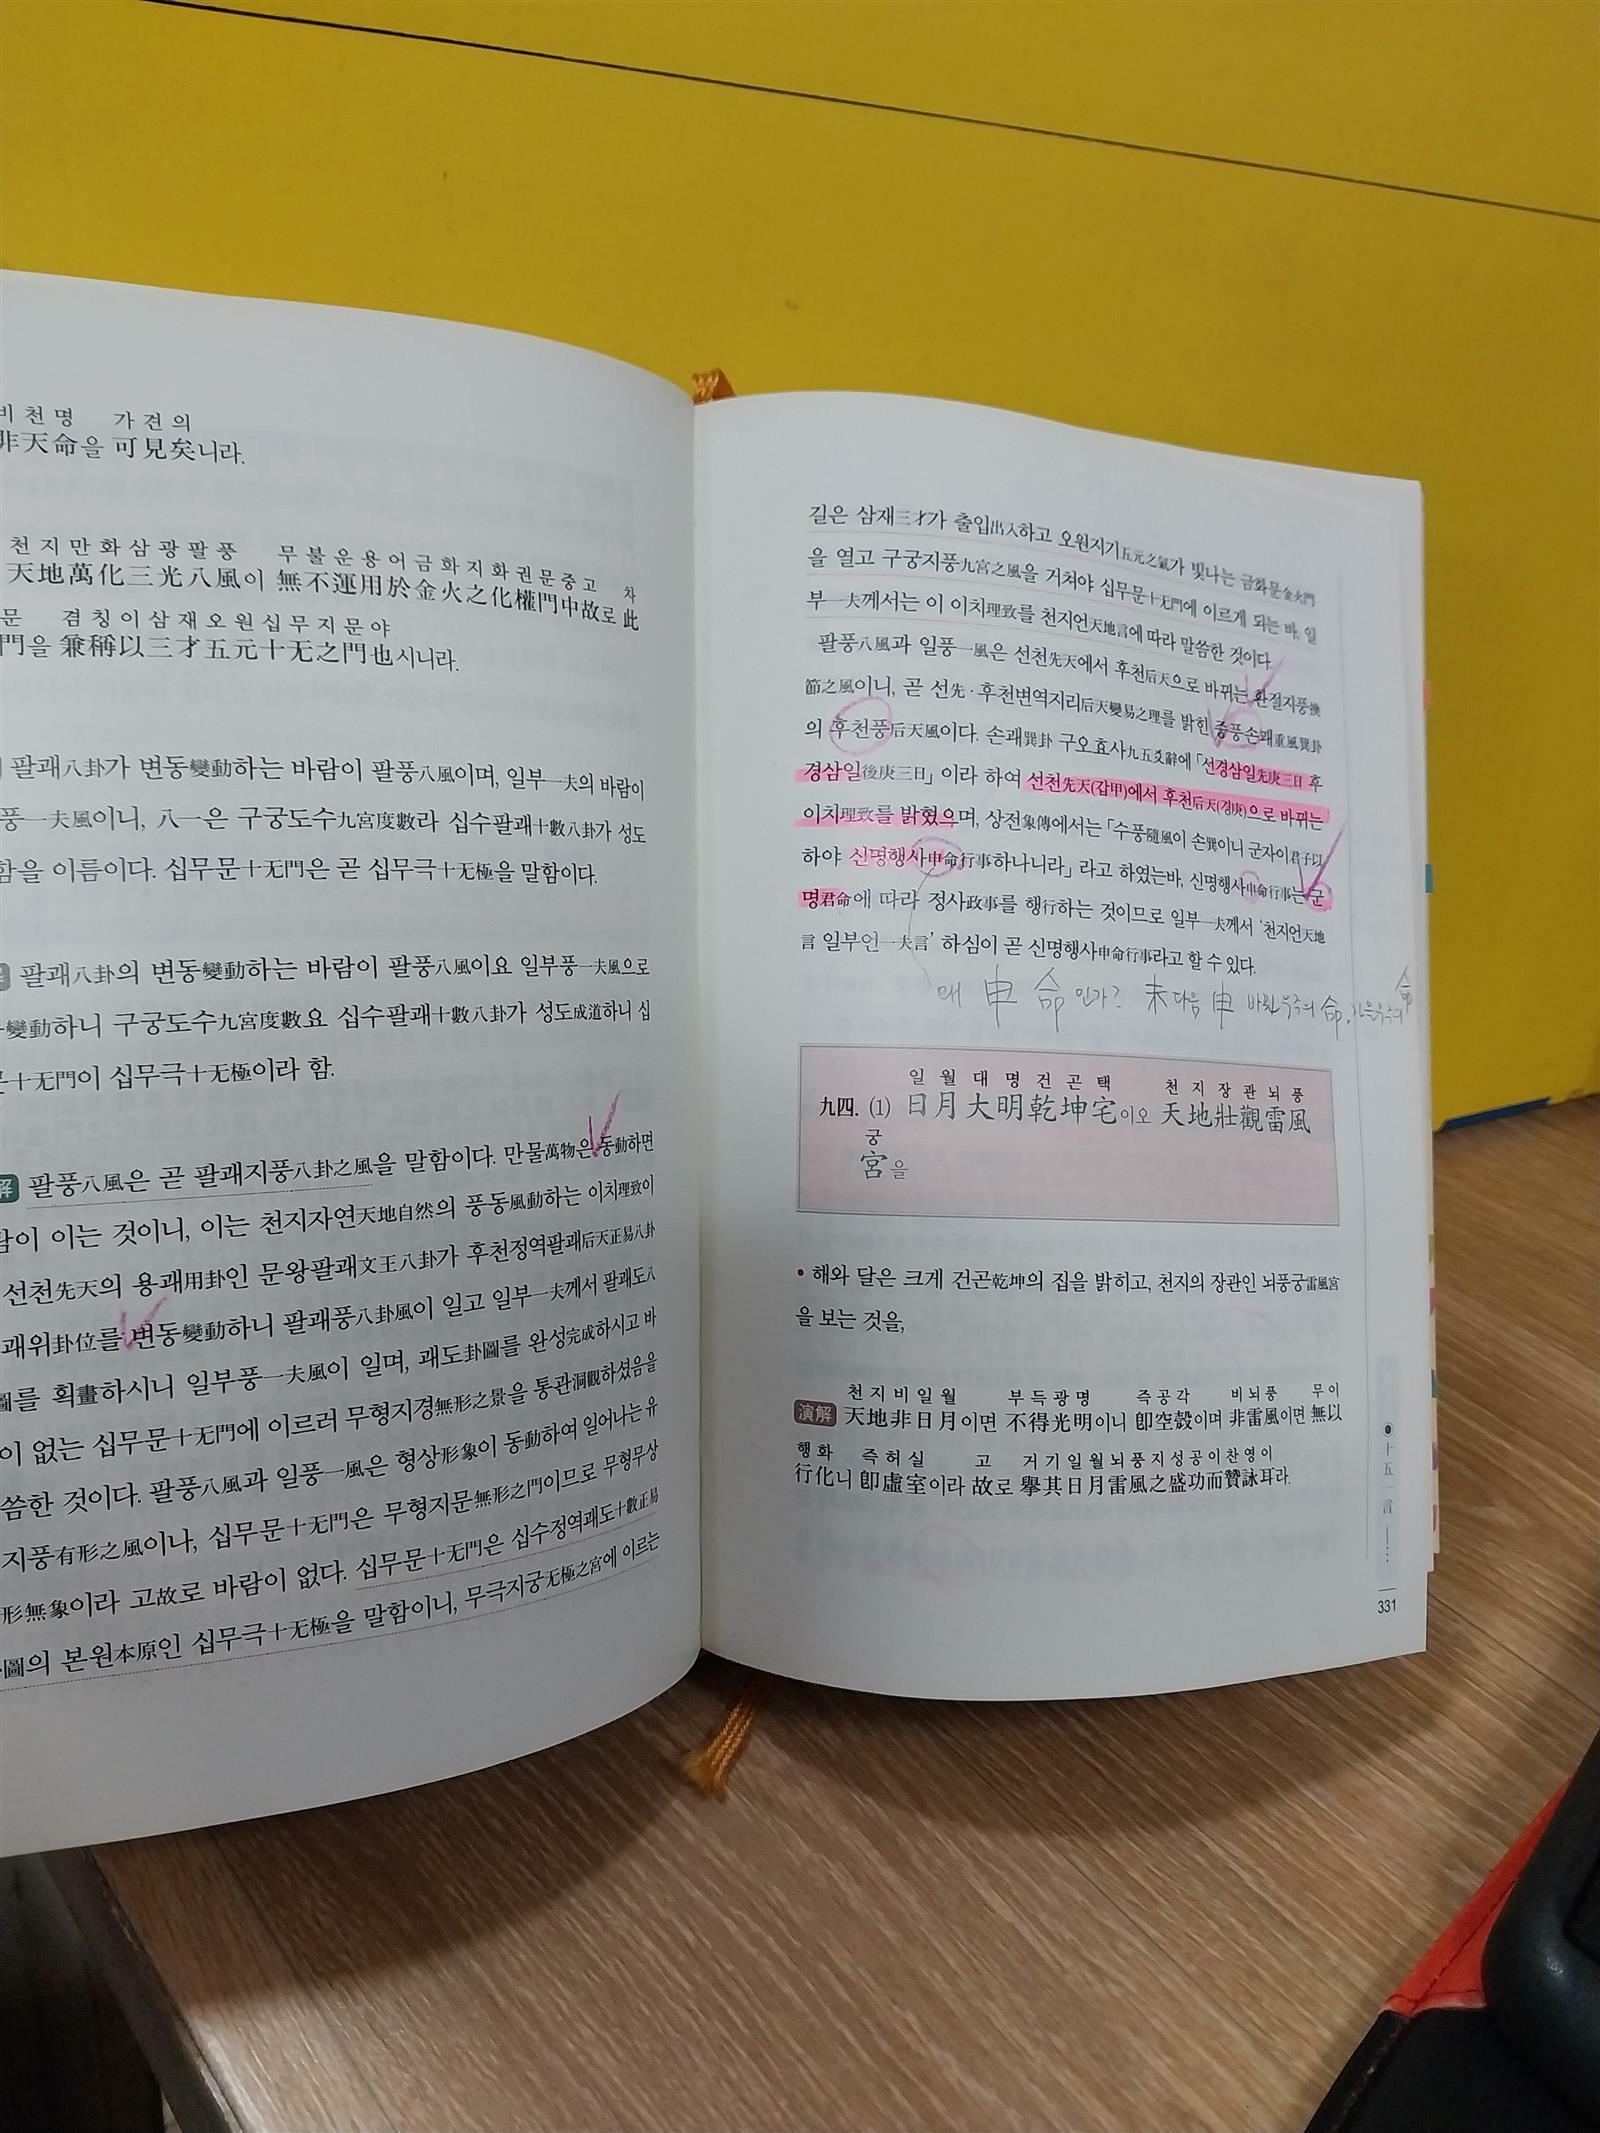 비천명 가견의
非天命을 可見矣니라.
천지만화삼광팔풍 무불운용어금화지화권문중고 차
天地萬化三光八風이 無不運用於金火之化權門中故로 此
문 겸칭이삼재오원십무지문야
門을 兼稱以三才五元十无之門也시니라.
팔괘八卦가 변동變動하는 바람이 팔풍八風이며, 일부一夫의 바람이
풍一夫風이니, 八一은 구궁도수九宮度數라 십수팔괘十數八卦가 성도
함을 이름이다. 십무문十无門은 곧 십무극十无極을 말함이다.
팔괘八卦의 변동變動하는 바람이 팔풍八風이요 일부풍一夫風으로
變動하니 구궁도수九宮度數요 십수팔괘十數八卦가 성도成道하니 십
문十无門이 십무극十无極이라 함.
解 팔풍八風은 곧 팔괘지풍八卦之風을 말함이다. 만물萬物은 동動하면
람이 이는 것이니, 이는 천지자연天地自然의 풍동風動하는 이치理致이
선천先天의 용괘用卦인 문왕팔괘文王八卦가 후천정역팔괘后天正易八卦
괘위卦位를 변동變動하니 팔괘풍八卦風이 일고 일부一夫께서 팔괘도八
圖를 획畫하시니 일부풍一夫風이 일며, 괘도卦圖를 완성完成하시고 바
이 없는 십무문十无門에 이르러 무형지경無形之景을 통관洞觀하셨음을
씀한 것이다. 팔풍八風과 일풍一風은 형상形象이 동動하여 일어나는 유
지풍有形之風이나, 십무문十无門은 무형지문無形之門이므로 무형무상
形無象이라 고故로 바람이 없다. 십무문十无門은 십수정역괘도十數正易
圖의 본원本原인 십무극十无極을 말함이니, 무극지궁无極之宮에 이르는
길은 삼재三才가 출입出入하고 오원지기五元之氣가 빛나는 금화문金火門
을 열고 구궁지풍九宮之風을 거쳐야 십무문十无門에 이르게 되는 바, 일
부一夫께서는 이 이치理致를 천지언天地言에 따라 말씀한 것이다.
팔풍八風과 일풍一風은 선천先天에서 후천后天으로 바뀌는 환절지풍換
節之風이니, 곧 선先·후천변역지리后天變易之理를 밝힌 중풍손괘重風巽卦
의 후천풍后天風이다. 손괘巽卦 구오효사九五爻辭에 「선경삼일先庚三日 후
경삼일後庚三日」이라 하여 선천先天(갑甲)에서 후천后天(경庚)으로 바뀌는
이치理致를 밝혔으며, 상전象傳에서는 「수풍隨風이 손巽이니 군자이君子以
하야 신명행사申命行事하나니라」라고 하였는바, 신명행사申命行事는 군
명君命에 따라 정사政事를 행行하는 것이므로 일부一夫께서 '천지언天地
言 일부언一夫言' 하심이 곧 신명행사申命行事라고 할 수 있다.
왜 申 命 인가? 未 다음 申 바뀐 우주의 命,
일월대명건곤택 천지장관뇌풍
九四. (1) 日月大明乾坤宅이오 天地壯觀雷風
궁
宮을
• 해와 달은 크게 건곤乾坤의 집을 밝히고, 천지의 장관인 뇌풍궁雷風宮
을 보는 것을,
천지비일월 부득광명 즉공각 비뇌풍 무이
演解 天地非日月이면 不得光明이니 卽空殼이며 非雷風이면 無以
행화 즉허실 고 거기일월뇌풍지성공이찬영이
行化니 卽虛室이라 故로 擧其日月雷風之盛功而贊詠耳라.
十五一言
331